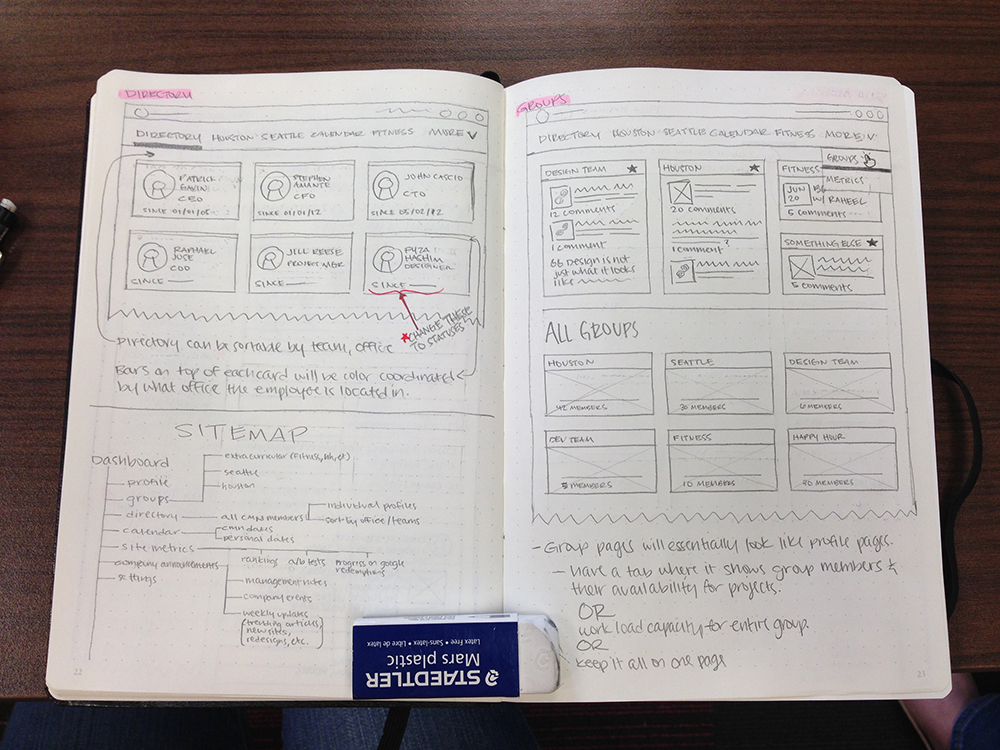 DIRECTORY
DIRECTORY HOUSTON SEATTLE CALENDAR FITNESS MORE
PATRICK
GAVIN
CEO
SINCE 01/01/05
STEPHEN
AMANTE
CFO
SINCE 01/01/12
JOHN CASCIO
CTO
SINCE 05/02/12
RAPHAEL
JOSE
COO
SINCE
JILL REESE
PROJECT MGR
SINCE
FYZA
HASHIM
DESIGNER
SINCE
CHANGE THESE
TO STATUSES
Directory can be sortable by team, office
Bars on top of each card will be color coordinated
by what office the employee is located in.
SITEMAP
Dashboard
profile
groups
extracurricular (fitness, hh, etc)
seattle
houston
directory
all CMN members
individual profiles
sort by office/teams
calendar
cmn dates
personal dates
site metrics
rankings a/b tests progress on google
redemptions
company announcements
& things
management notes
company events
weekly updates
(trending articles,
new sites,
redesigns, etc.)
22
GROUPS
DIRECTORY HOUSTON SEATTLE CALENDAR FITNESS MORE
GROUPS
METRICS
DESIGN TEAM
12 comments
1 comment
66 Design is not
just what it looks
like
HOUSTON
20 comments
1 comment
FITNESS
JUN
20
W/ RAHEEL
5 comments
SOMETHING ELSE
5 comments
ALL GROUPS
HOUSTON
42 MEMBERS
SEATTLE
30 MEMBERS
DESIGN TEAM
6 MEMBERS
DEV TEAM
5 MEMBERS
FITNESS
10 MEMBERS
HAPPY HOUR
80 MEMBERS
- Group pages will essentially look like profile pages.
- have a tab where it shows group members &
their availability for projects.
OR
work load capacity for entire group.
OR
keep it all on one page
23
STAEDTLER
Mars plastic
Latex Free • Sans-latex • Libre de latex